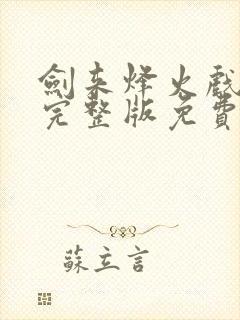 劍来烽火戲
完整版免費
蘇立言